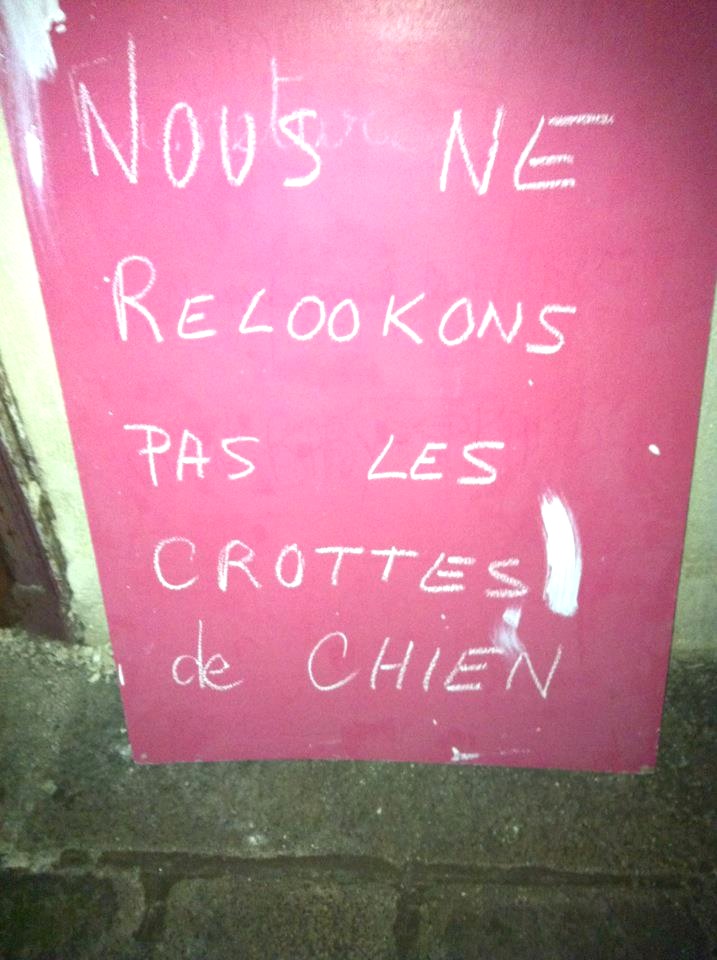 NOUS NE
RELOOKONS
PAS LES
CROTTES
de CHIEN